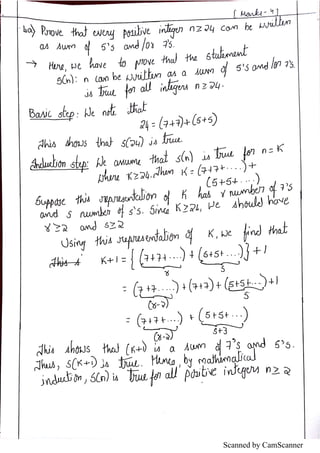 [Marks - 4]
6a) Prove that every positive integer n≥24 can be written
as sum of 5's and/or 7's.
→ Here, we have to prove that the statement
S(n): n can be written as a sum of 5's and/or 7's
is true for all integers n ≥ 24.
Basic step: We note that
24 = (7+7)+(5+5)
This shows that S(24) is true.
Induction step: We assume that S(n) is true for n=K
where K≥24. Then K = (7+7+....)+
(5+5+....)
Suppose this representation of K has r number of 7's
and s number of 5's. Since K≥24, we should have
r≥2 and s≥2
Using this representation of K, we find that
This s K+1 = { (7+7+...) + (5+5+...) } + 1
r S
= (7+7.....) + (7+7) + (5+5+...) +1
(r-2) S
= (7+7+...) + (5+5+...)
(r-2) s+3
This shows that (K+1) is a sum of 7's and 5's.
Thus, S(K+1) is true. Hence, by mathematical
induction, S(n) is true for all positive integers n≥ 2
Scanned by CamScanner